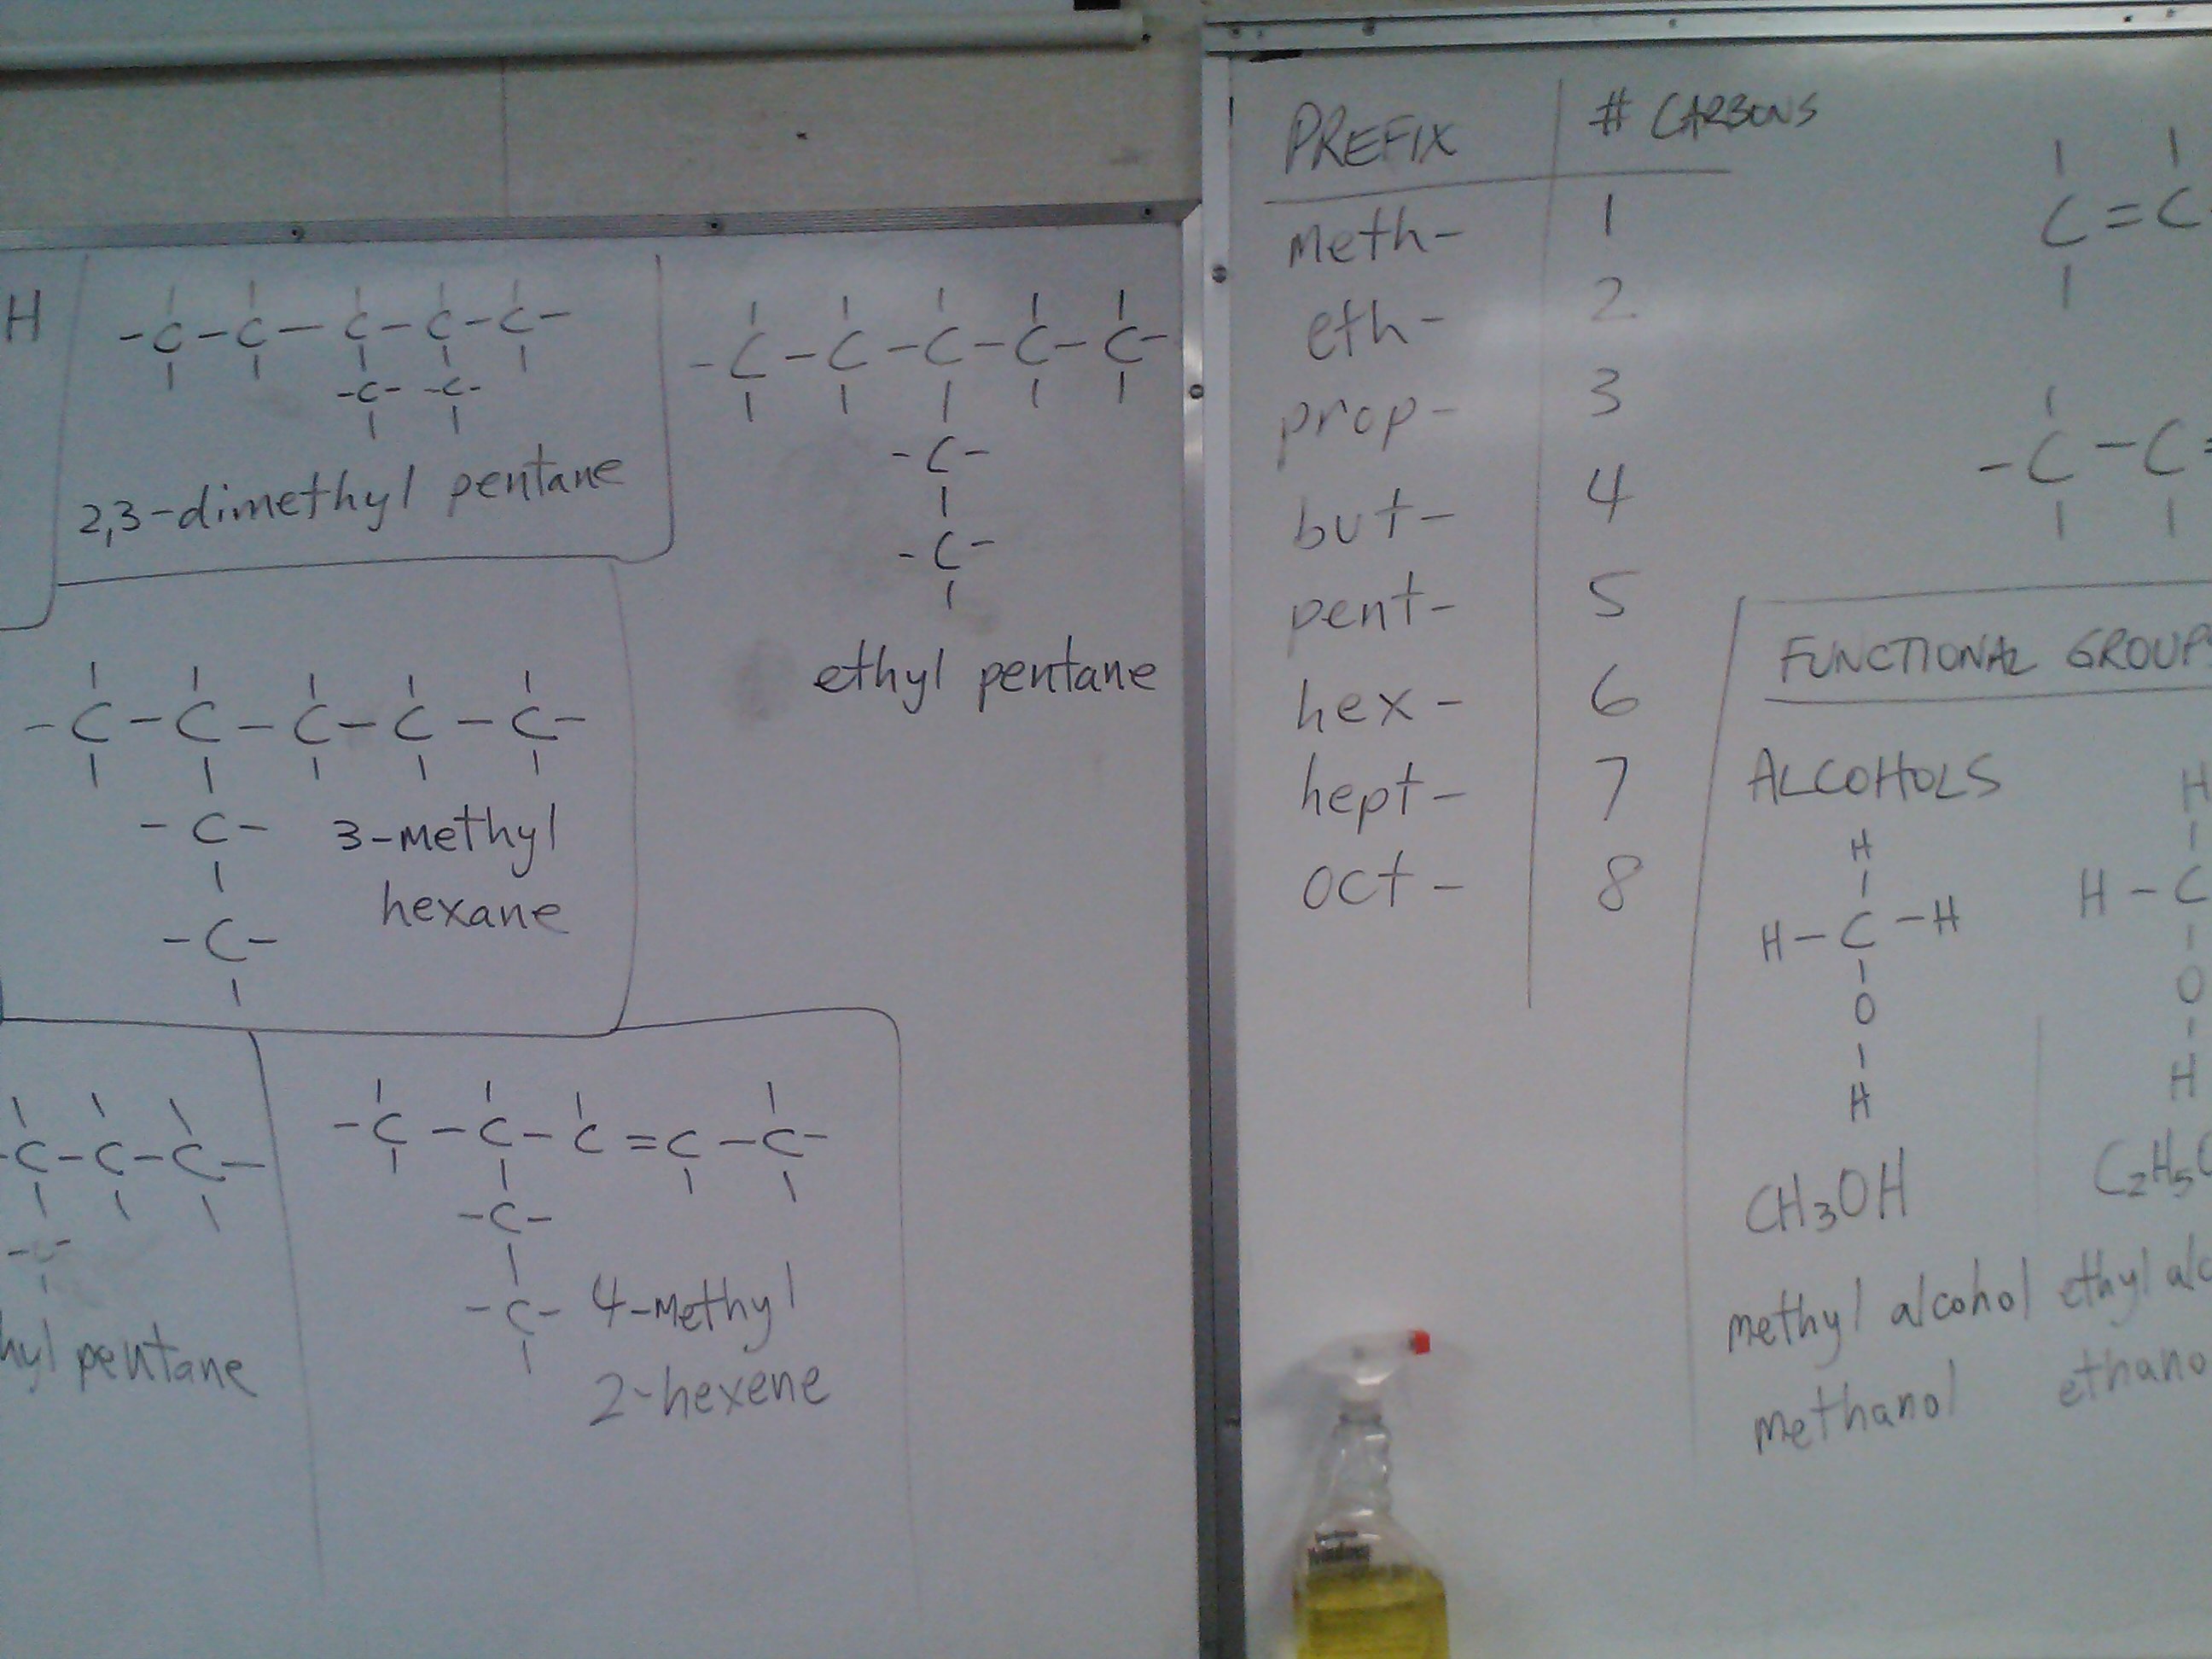 H
2,3-dimethyl pentane
ethyl pentane
3-methyl
hexane
hyl pentane
4-methyl
2-hexene
PREFIX # CARBONS
meth- 1
eth- 2
prop- 3
but- 4
pent- 5
hex- 6
hept- 7
oct- 8
C=C
-C-C=
FUNCTIONAL GROUPS
ALCOHOLS
H
H-C-H
O
H
CH3OH
methyl alcohol
methanol
H
H-C
O
H
C2H5O
ethyl alc
ethano
-C-C-C-C-C-
-C- -C-
-C-C-C-C-C-
-C-
-C-
-C-C-C-C-C-
-C-
-C-
-C-C-C-
-C-
-C-C-C=C-C-
-C-
-C-